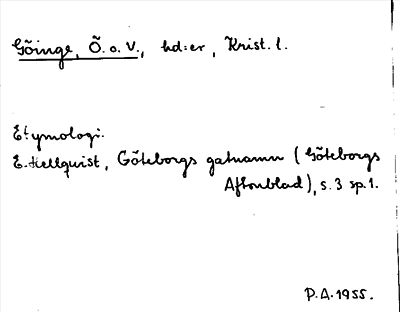 Göinge, Ö. o. V., hd:er, Krist. l.
Etymologi.
E. Hellquist, Göteborgs gatnamn (Göteborgs
Aftonblad), s. 3 sp. 1.
P.A. 1955.